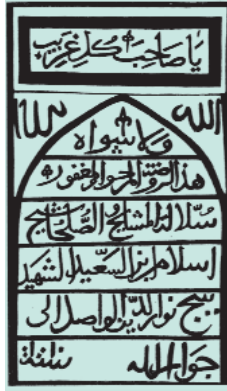 يا صاحب كل غريب
الله الله
ولا سواه
هذا الروضة المرحوم المغفور
سلالة المشايخ و الصلحا شيخ
اسلام بن السعيد الشهيد
شيخ نور الدين الواصل الى
جوار الله